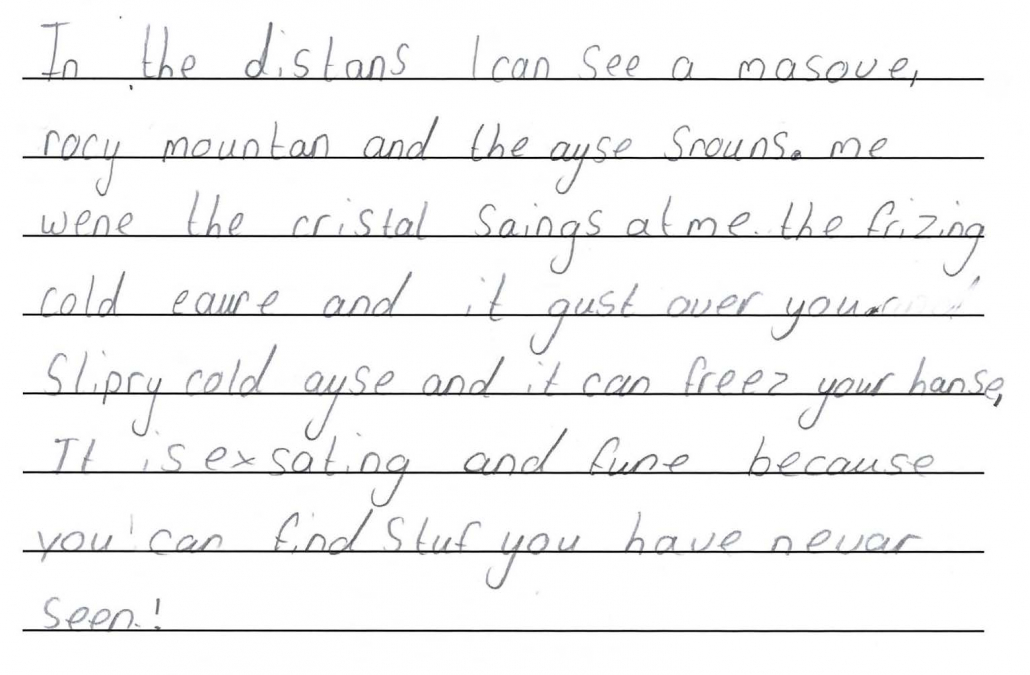 In the distans I can see a masove,
rocy mountan and the ayse srouns. me
wene the cristal saings at me. the frizing
cold eaure and it gust over your
Slipry cold ayse and it can freez your hanse,
It is exsating and fune because
you can find Stuf you have nevar
seen.!